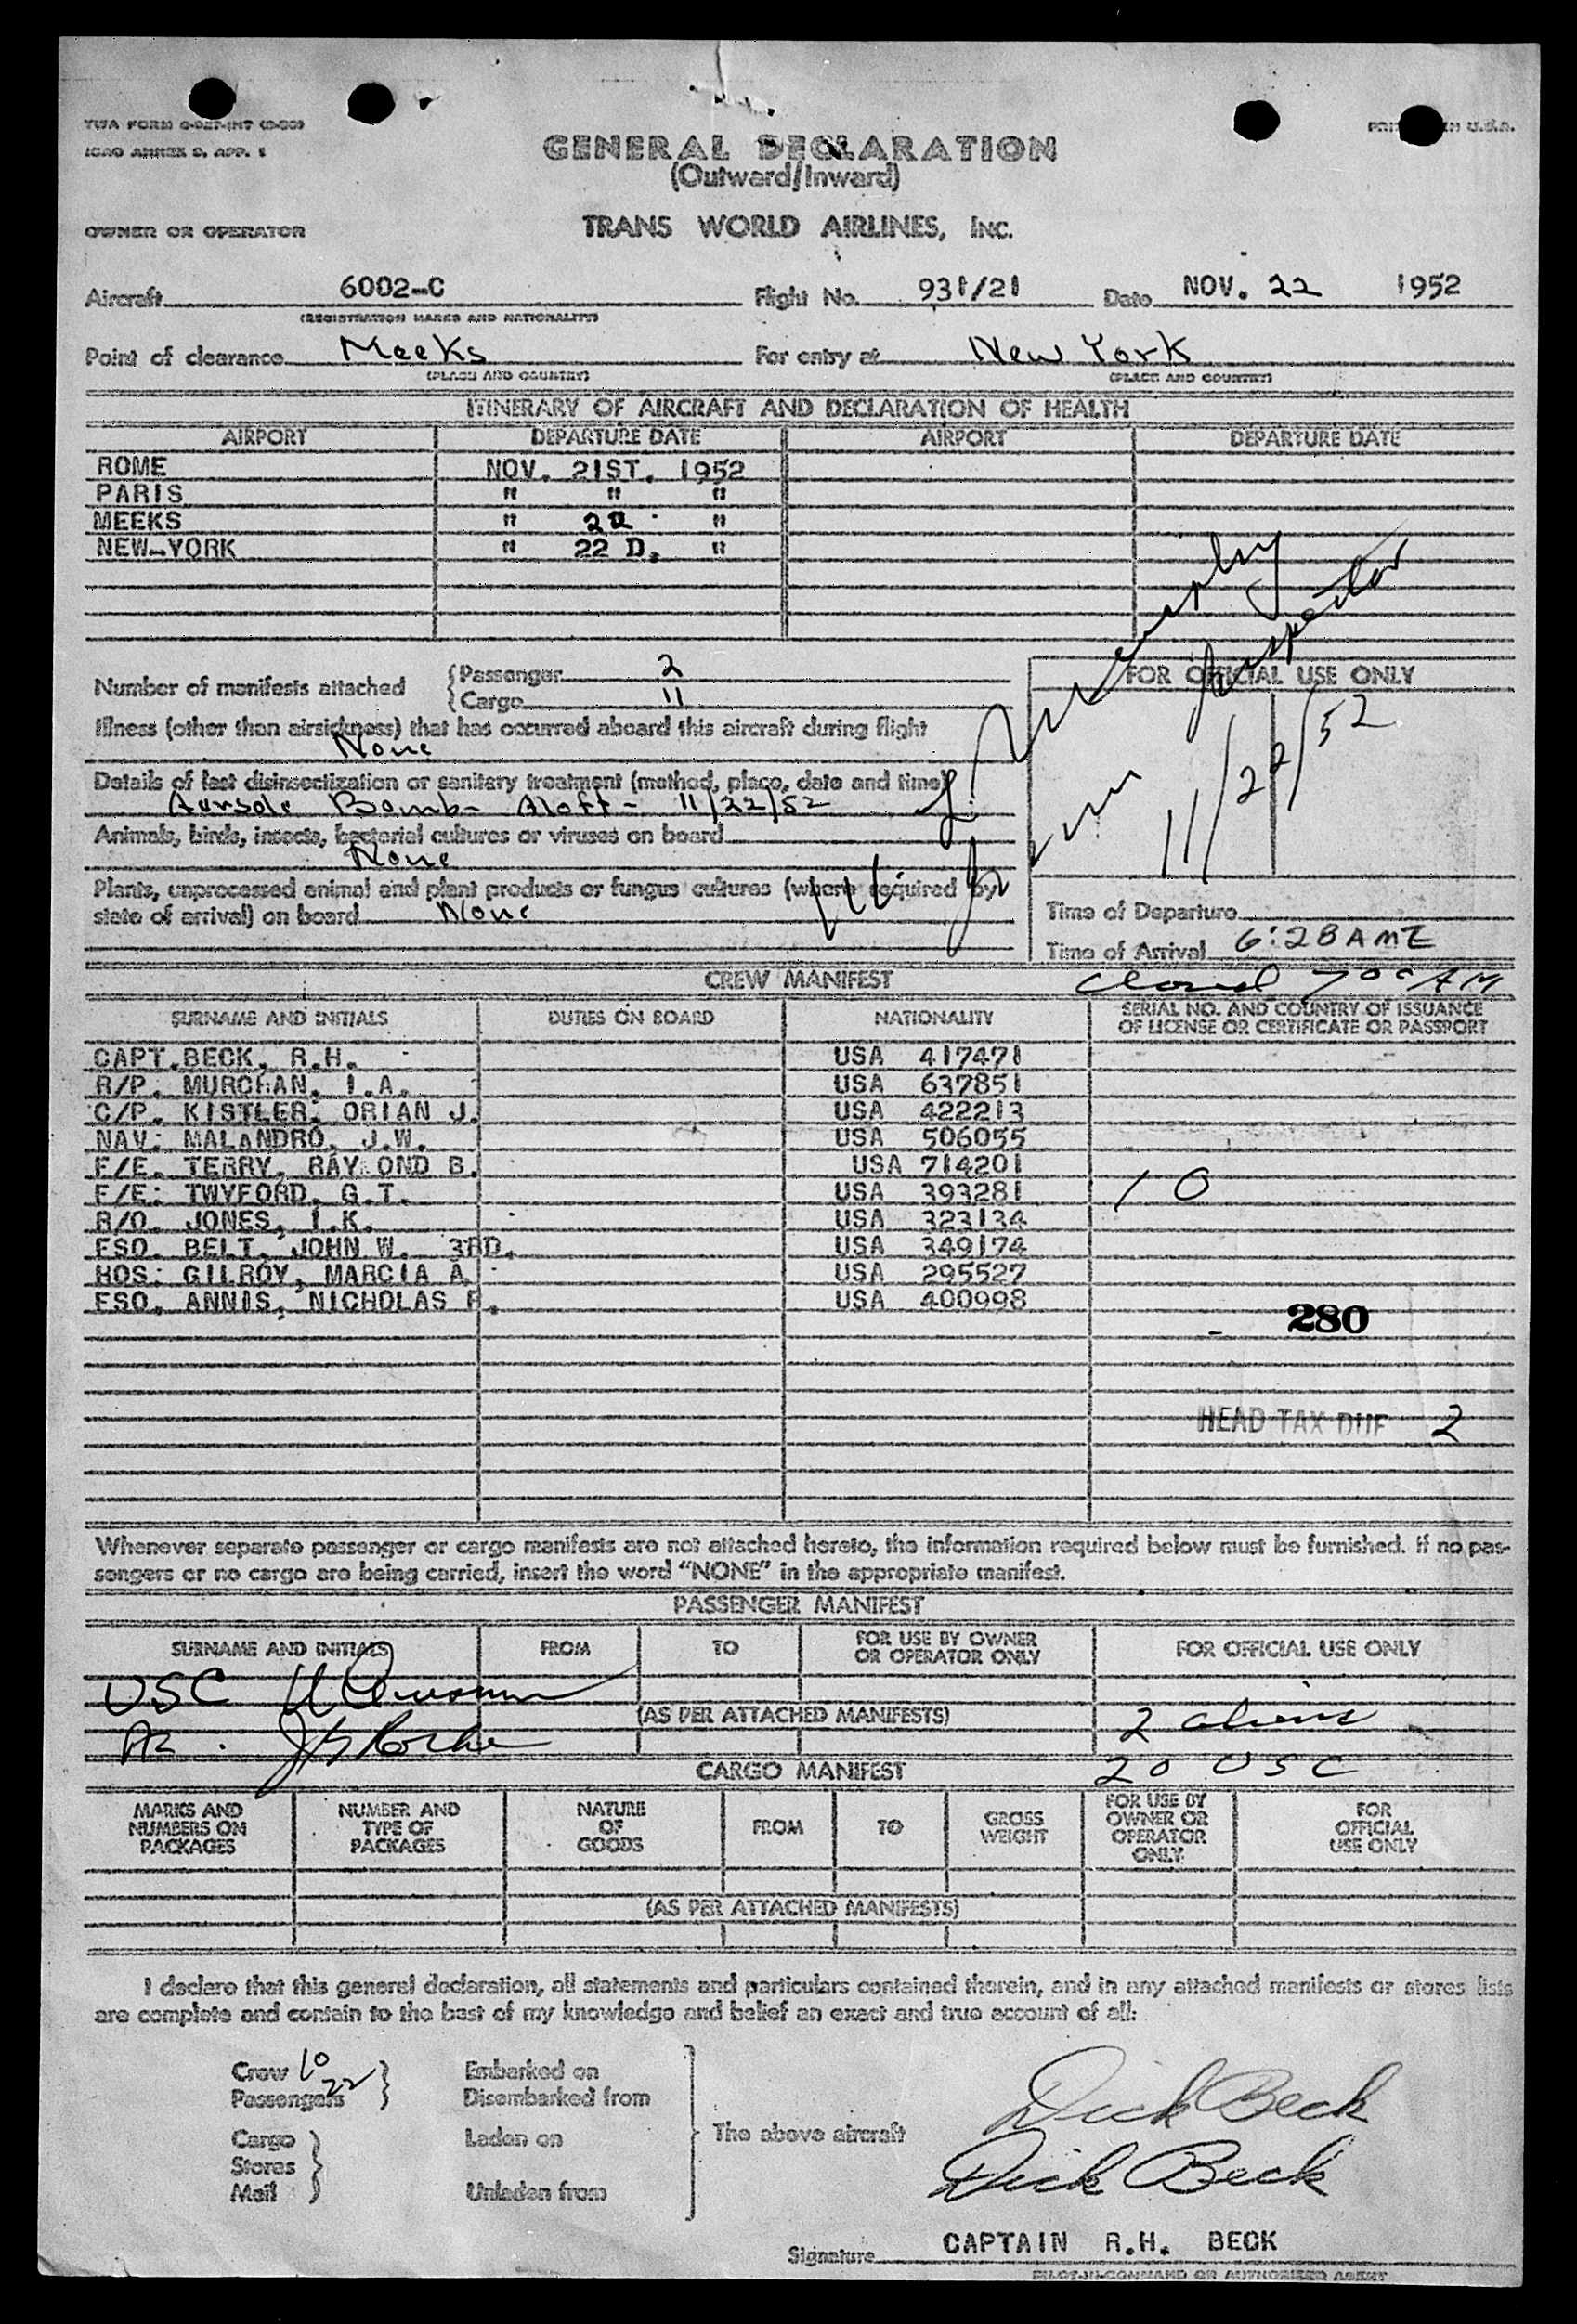 TWA FORM
ICAO ANNEX 9, APP. 1
U.S.A.
GENERAL DECLARATION
(Outward/Inward)
OWNER OR OPERATOR TRANS WORLD AIRLINES, INC.
Aircraft 6002-C Flight No. 931/21 Date NOV. 22 1952
(REGISTRATION MARKS AND NATIONALITY)
Point of clearance Meeks For entry at New York
(PLACE AND COUNTRY) (PLACE AND COUNTRY)
ITINERARY OF AIRCRAFT AND DECLARATION OF HEALTH
AIRPORT DEPARTURE DATE AIRPORT DEPARTURE DATE
ROME NOV. 21ST. 1952
PARIS " " "
MEEKS " 22 "
NEW-YORK " 22 D. "
Inspector
Number of manifests attached { Passenger 2
{ Cargo 11
FOR OFFICIAL USE ONLY
11/22/52
Illness (other than airsickness) that has occurred aboard this aircraft during flight
None
Details of last disinsectization or sanitary treatment (method, place, date and time)
Aersole Bomb- Aloft- 11/22/52
Animals, birds, insects, bacterial cultures or viruses on board
None
Plants, unprocessed animal and plant products or fungus cultures (where required by
state of arrival) on board None
Time of Departure
Time of Arrival 6:28 AM E
CREW MANIFEST
Closed 7 00 AM
SURNAME AND INITIALS DUTIES ON BOARD NATIONALITY SERIAL NO. AND COUNTRY OF ISSUANCE
OF LICENSE OR CERTIFICATE OR PASSPORT
CAPT. BECK, R.H. USA 417471
R/P. MURCHAN, I.A. USA 637851
C/P. KISTLER, ORIAN J. USA 422213
NAV: MALANDRO, J.W. USA 506055
F/E. TERRY, RAYMOND B. USA 714201
F/E: TWYFORD, G.T. USA 393281 10
R/O. JONES, I.K. USA 323134
FSO. BELT, JOHN W. 3RD. USA 349174
HOS: GILROY, MARCIA A USA 295527
FSO. ANNIS, NICHOLAS P. USA 400998
280
HEAD TAX DUE 2
Whenever separate passenger or cargo manifests are not attached hereto, the information required below must be furnished. If no pas-
sengers or no cargo are being carried, insert the word "NONE" in the appropriate manifest.
PASSENGER MANIFEST
SURNAME AND INITIALS FROM TO FOR USE BY OWNER
OR OPERATOR ONLY FOR OFFICIAL USE ONLY
USC
(AS PER ATTACHED MANIFESTS) 2 aliens
20 USC
CARGO MANIFEST
MARKS AND
NUMBERS ON
PACKAGES NUMBER AND
TYPE OF
PACKAGES NATURE
OF
GOODS FROM TO GROSS
WEIGHT FOR USE BY
OWNER OR
OPERATOR
ONLY FOR
OFFICIAL
USE ONLY
(AS PER ATTACHED MANIFESTS)
I declare that this general declaration, all statements and particulars contained therein, and in any attached manifests or stores lists
are complete and contain to the best of my knowledge and belief an exact and true account of all:
Crew 10 Embarked on
Passengers 22 Disembarked from
Cargo Laden on The above aircraft
Stores
Mail Unladen from
Dick Beck
Dick Beck
Signature CAPTAIN R.H. BECK
PILOT-IN-COMMAND OR AUTHORISED AGENT